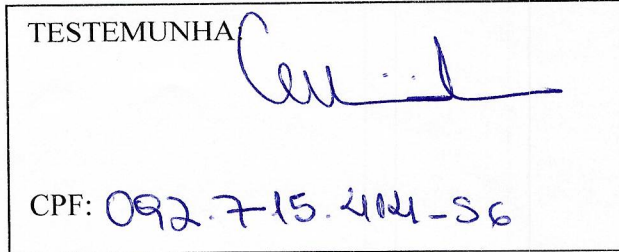 TESTEMUNHA
CPF: 092.715.414-56